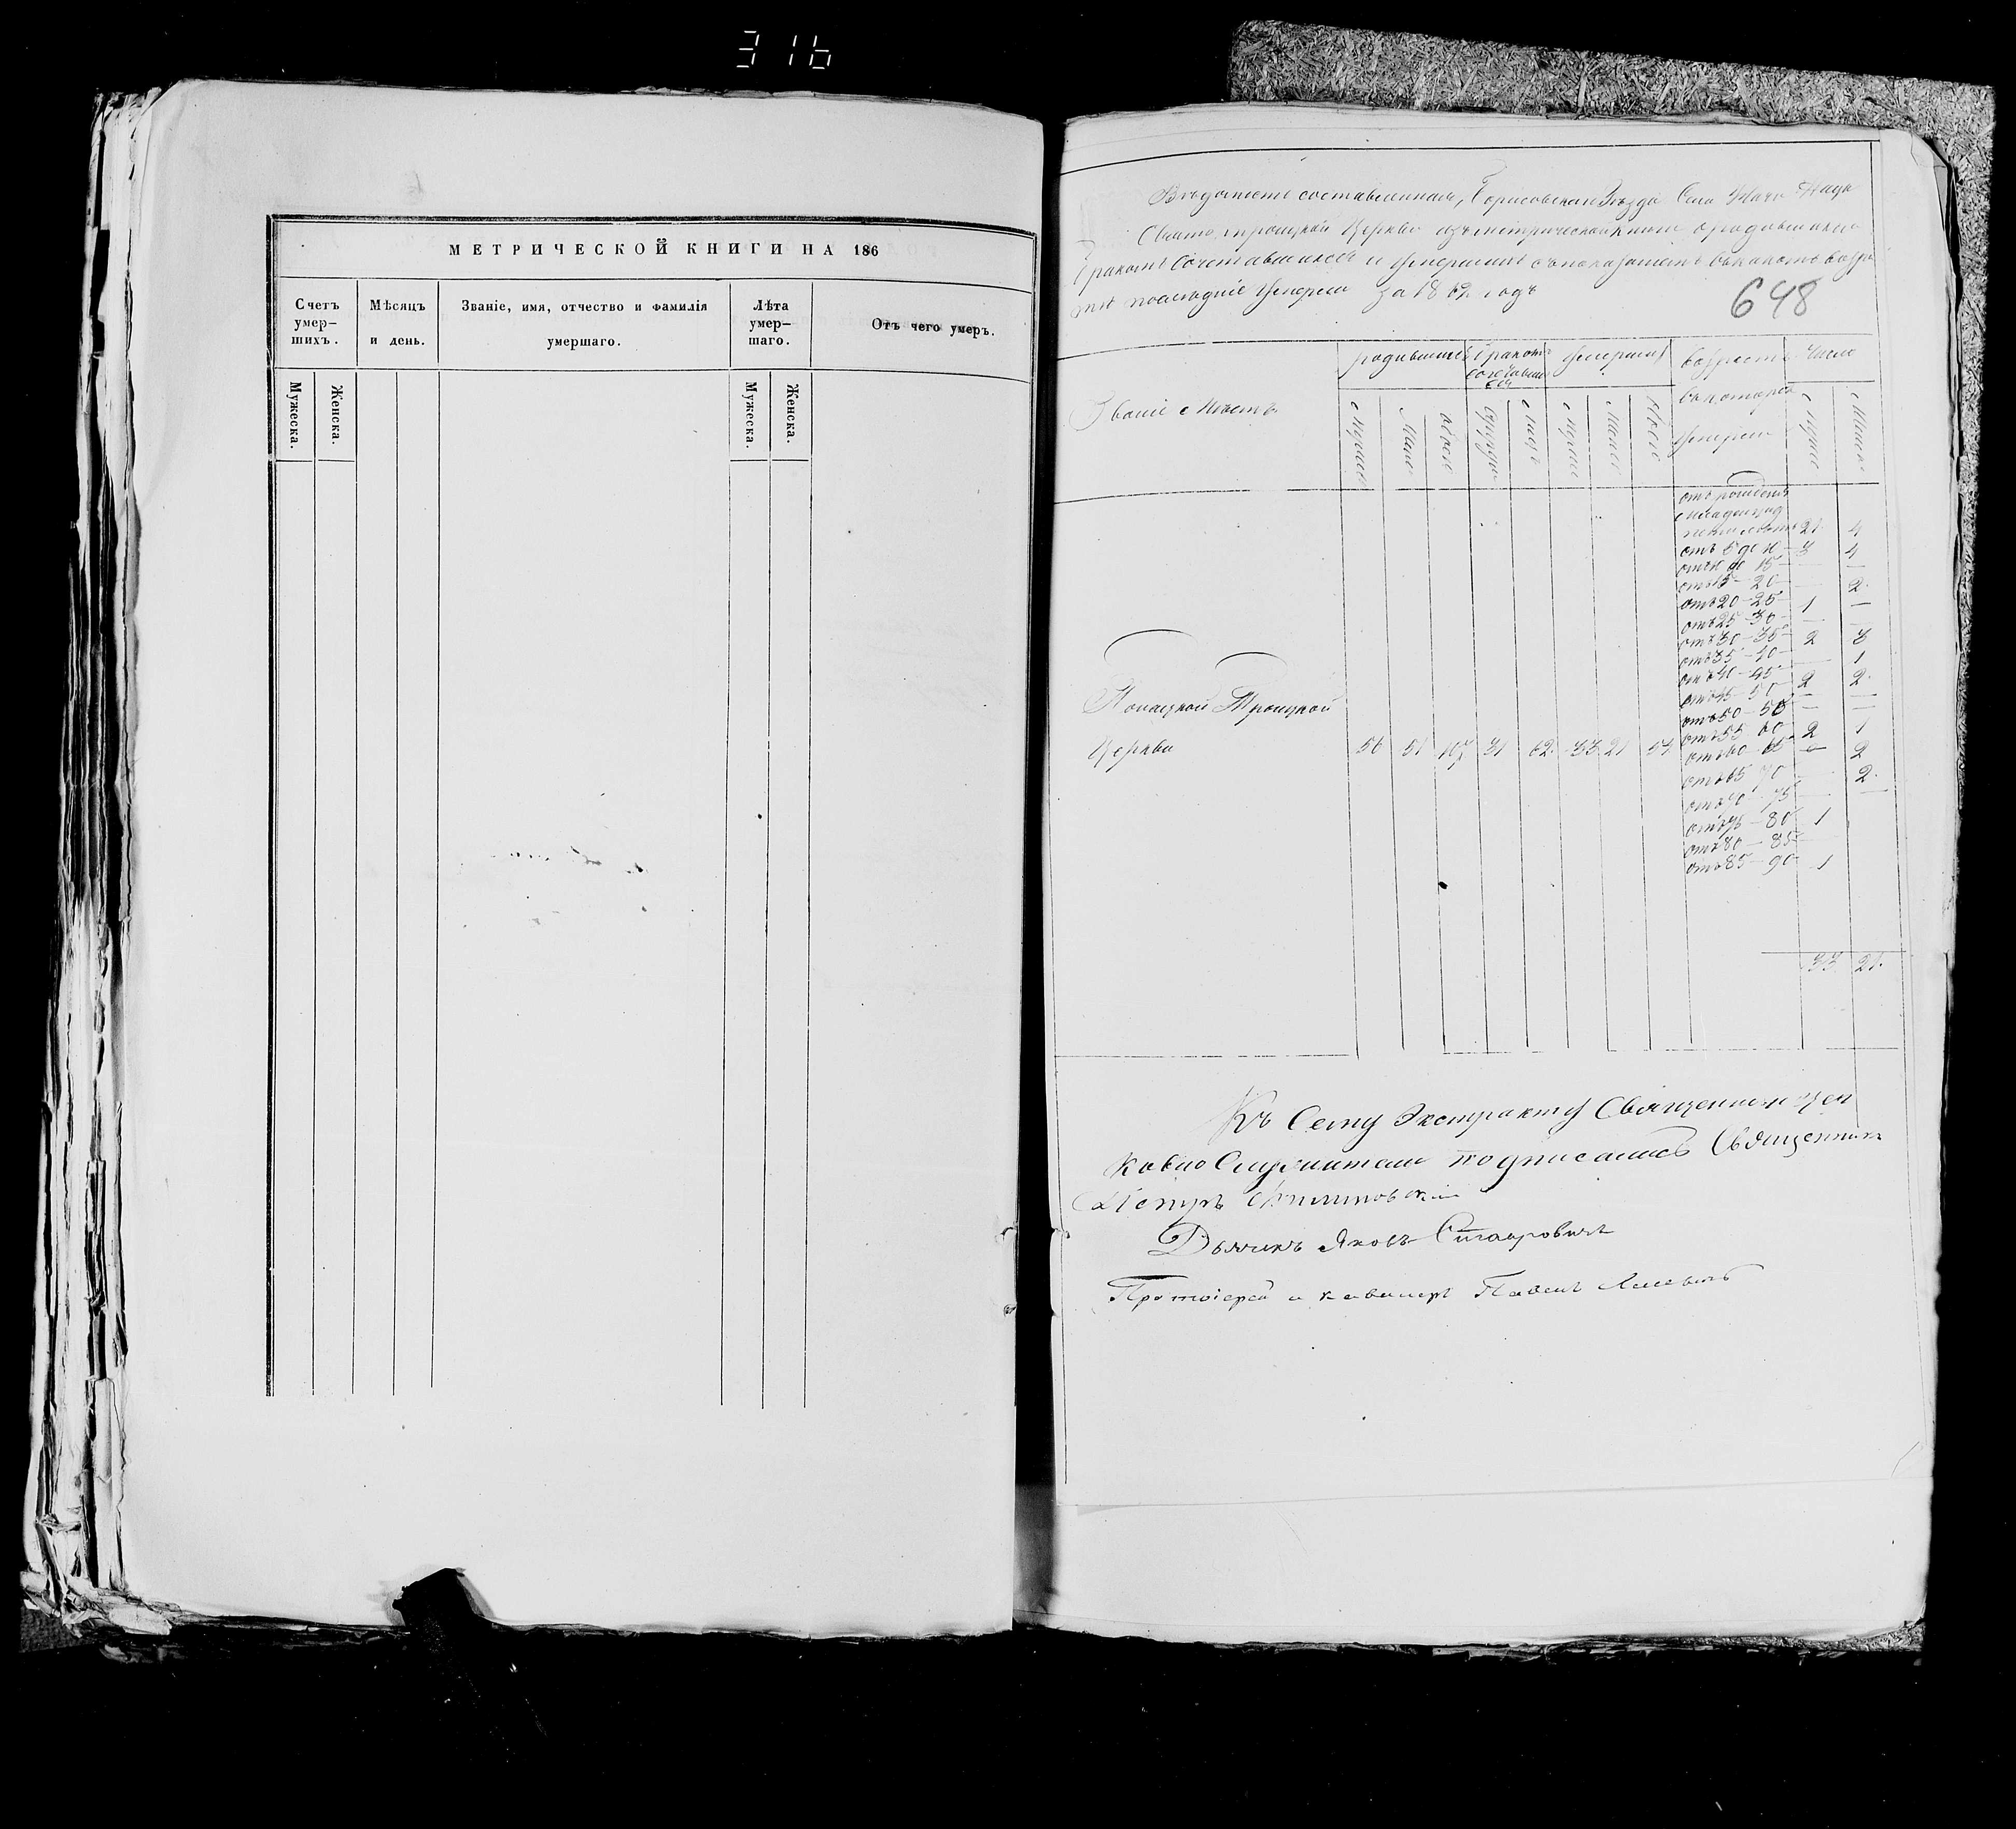 316
МЕТРИЧЕСКОЙ КНИГИ НА 186
Счетъ умер-шихъ.
Мѣсяцъ и день.
Званіе, имя, отчество и фамилія умершаго.
Лѣта умер-шаго.
Отъ чего умеръ.
Мужеска.
Женска.
Мужеска.
Женска.
Вѣдомость составленная, Борисовскаго Уѣзда Села
Свято троицкой Церкви изъ метрической книги о родившихся
бракомъ сочетавшихся и умершихъ съ показаніемъ въ какомъ возра
стѣ последніе умерли за 1862 годъ
648
Званіе Мѣстъ
родившихся
бракомъ сочетавших ся
умершихъ
возрастъ въ которомъ умерли
Число
отъ рожденія
пяти летъ 21 4
отъ 5 до 10 3 4
отъ 10 до 15 — —
отъ 15 — 20 — 2
отъ 20 — 25 1 —
отъ 25 — 30 — —
отъ 30 — 35 2 3
отъ 35 — 40 — 1
отъ 40 — 45 2 2
отъ 45 — 50 — —
отъ 50 — 55 — —
отъ 55 60 2 1
отъ 60 — 65 — 2
отъ 65 70 — 2
отъ 70 — 75 — —
отъ 75 — 80 1
отъ 80 — 85 —
отъ 85 — 90 1
Троицкой
Церкви 56 51 107 31 62 33 21 54
33 21
Къ Сему Экстракту Священно и цер
ковно Служители подписались Священникъ
Петръ
Дьячикъ Яковъ
Протоіерей и кавалеръ Павелъ